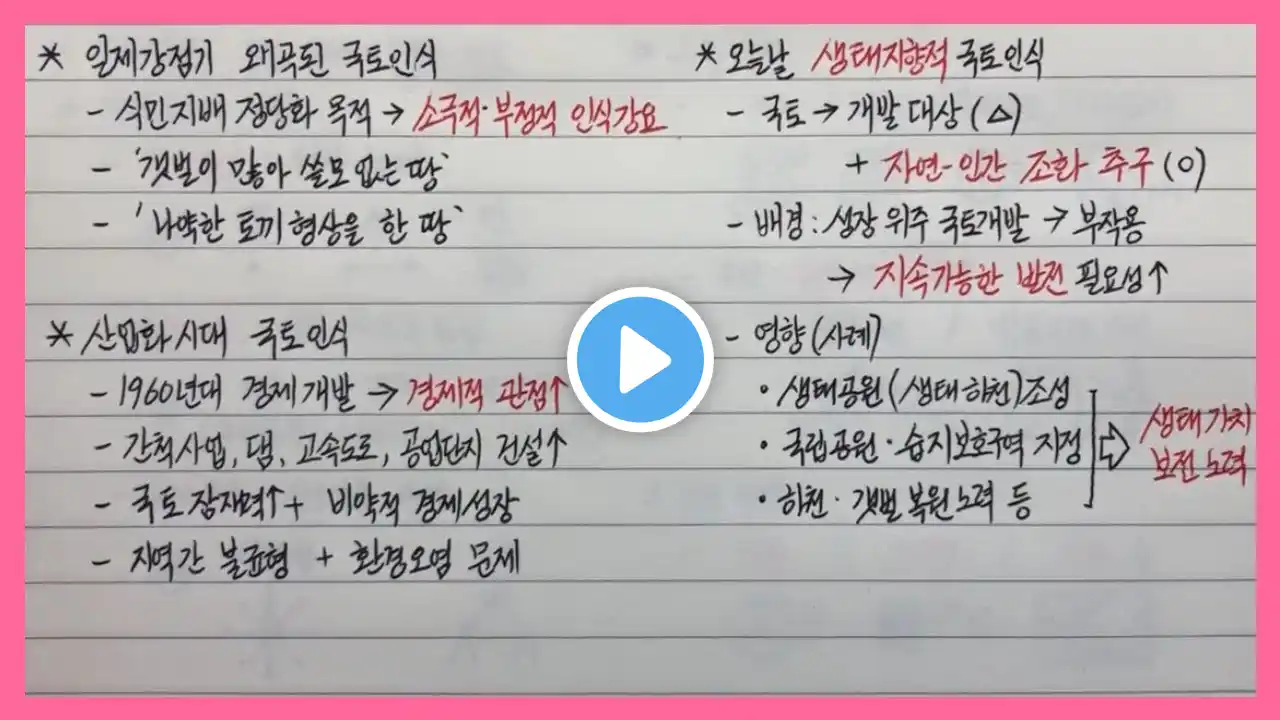 * 일제강점기 왜곡된 국토인식
- 식민지배 정당화 목적 → 소극적·부정적 인식강요
- '갯벌이 많아 쓸모 없는 땅'
- '나약한 토끼 형상을 한 땅'
* 산업화 시대 국토인식
- 1960년대 경제 개발 → 경제적 관점↑
- 간척사업, 댐, 고속도로, 공업단지 건설↑
- 국토 잠재력↑ + 비약적 경제성장
- 지역간 불균형 + 환경오염 문제
* 오늘날 생태지향적 국토인식
- 국토 → 개발 대상 (△)
+ 자연-인간 조화 추구 (O)
- 배경 : 성장 위주 국토개발 → 부작용
→ 지속가능한 발전 필요성↑
- 영향 (사례)
• 생태공원 (생태하천) 조성
• 국립공원 · 습지보호구역 지정
• 하천 · 갯벌 복원 노력 등
⇨ 생태 가치
보전 노력